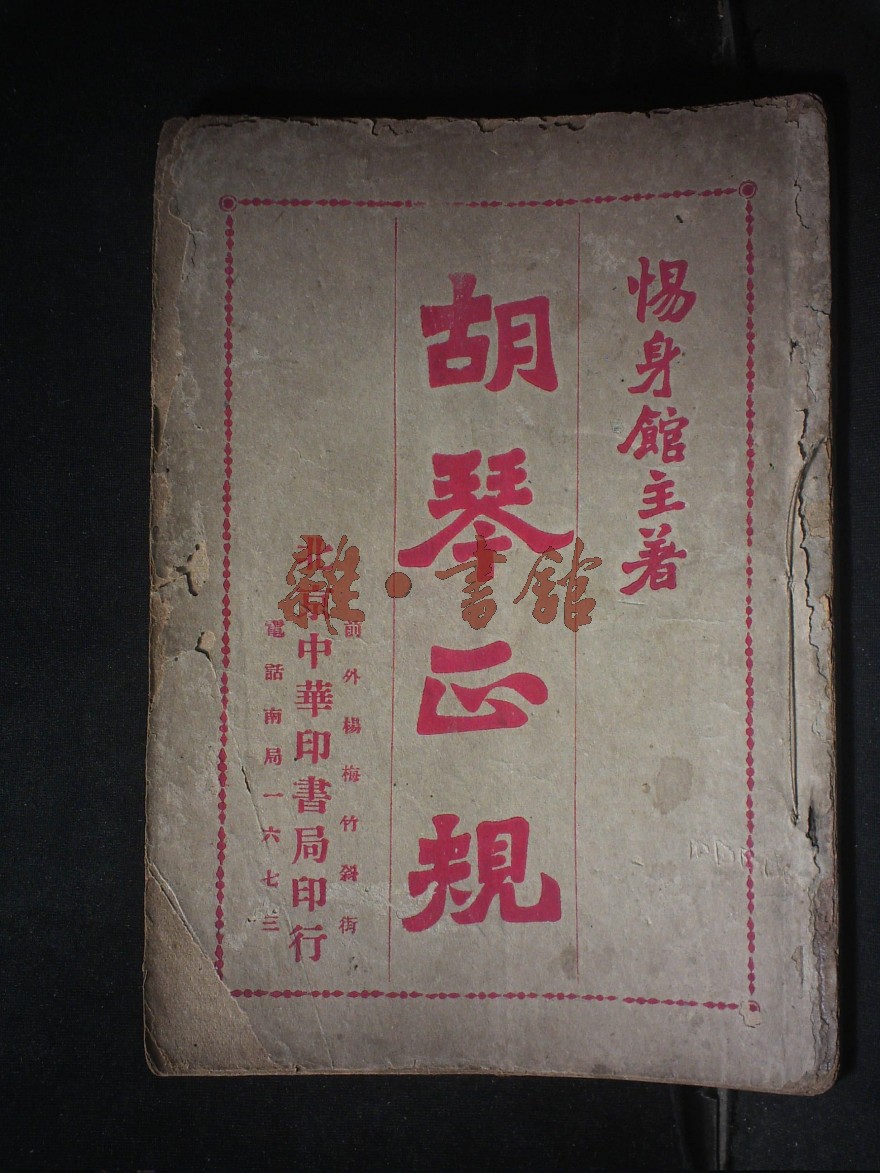 惕身館主著
胡琴正規
前外楊梅竹斜街
北京中華印書局印行
電話南局一六七三
雜·書館